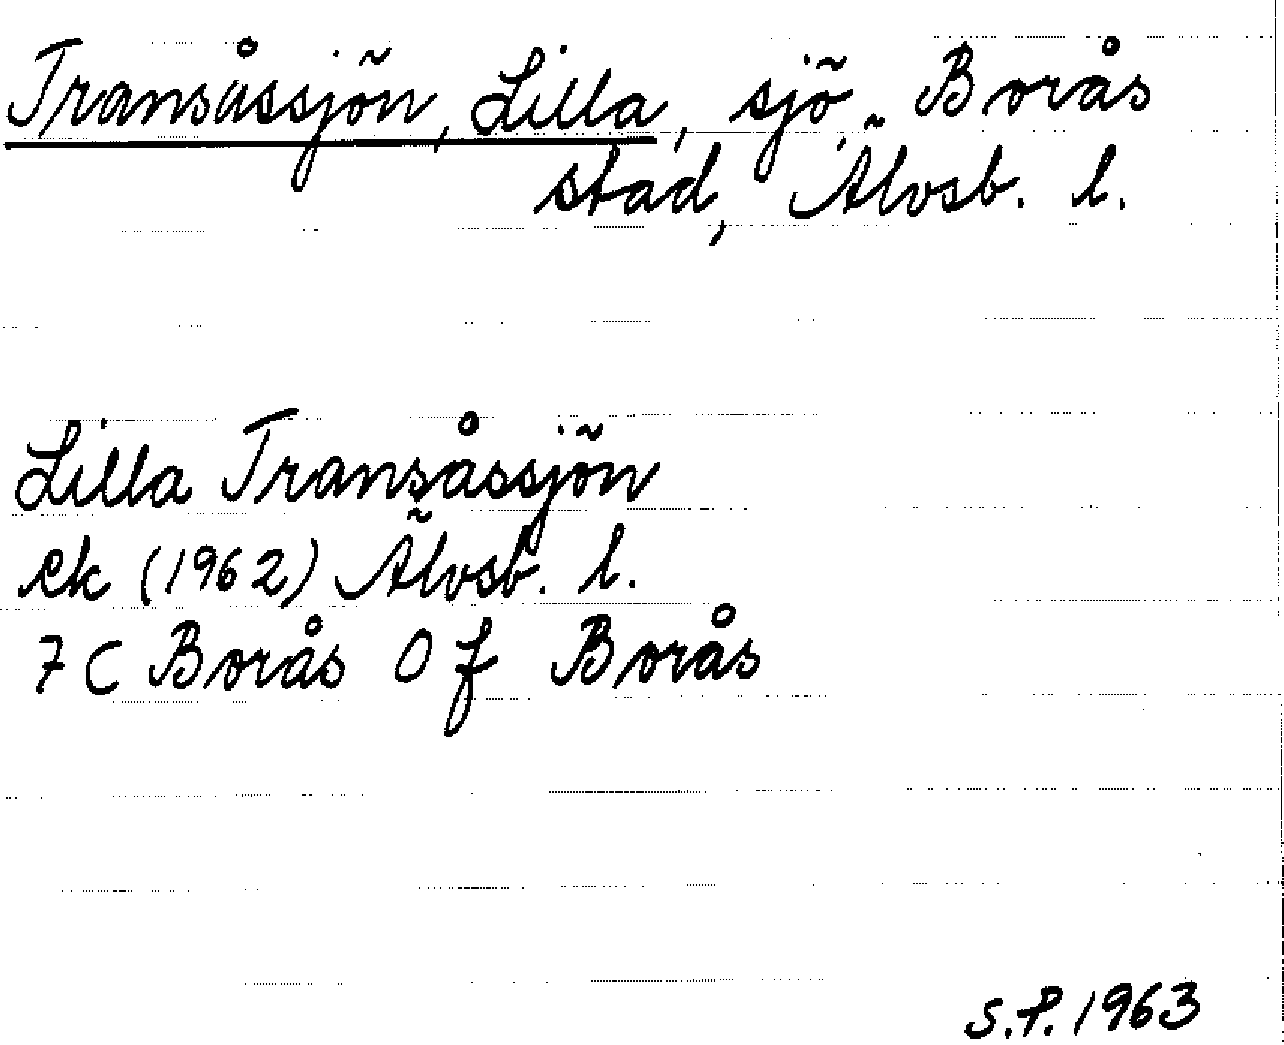 Transåssjön, Lilla, sjö, Borås
stad, Älvsb. l.
Lilla Transåssjön
ek (1962) Älvsb. l.
7 C Borås 0 f Borås
S.P. 1963